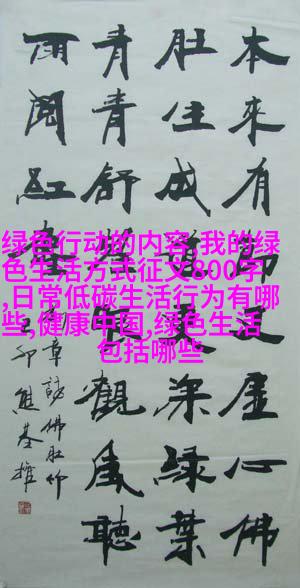 绿色行动的内容,我的绿
色生活方式征文800字
,日常低碳生活行为有哪
些,健康中国,绿色生活
包括哪些
本來有節又虛心佛
肚生成深緑葉
青青舒觀風聽
雨闻红
章詠佛肚竹
卯熊基